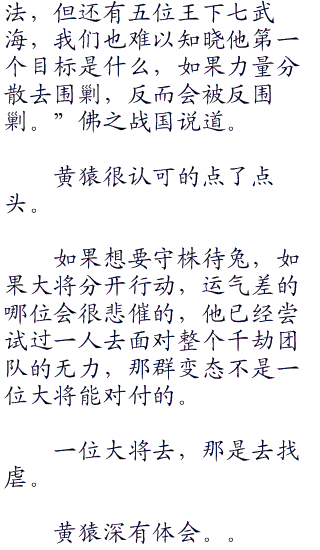 法，但还有五位王下七武
海，我们也难以知晓他第一
个目标是什么，如果力量分
散去围剿，反而会被反围
剿。”佛之战国说道。
黄猿很认可的点了点
头。
如果想要守株待兔，如
果大将分开行动，运气差的
哪位会很悲催的，他已经尝
试过一人去面对整个千劫团
队的无力，那群变态不是一
位大将能对付的。
一位大将去，那是去找
虐。
黄猿深有体会。。